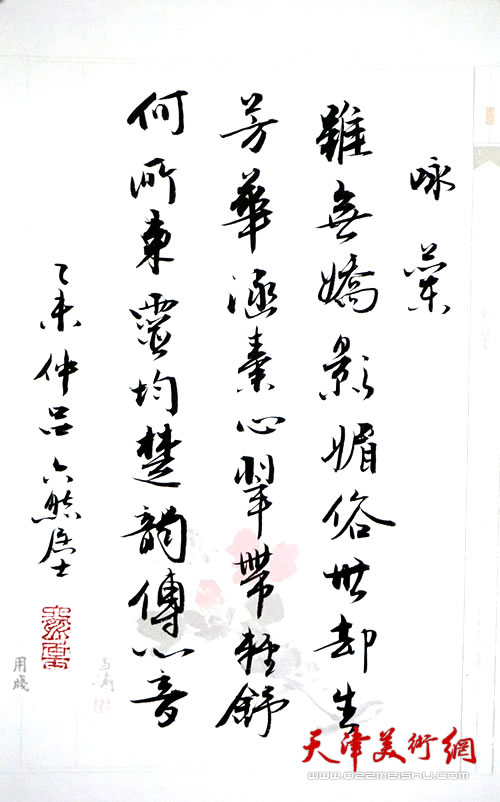 咏兰
雖無嬌影媚俗世却生
芳華涵素心翠帶輕舒
何所東靈均楚韻傳心音
乙未仲吕 六然居士
用牋
天津美術網
www.022meishu.com